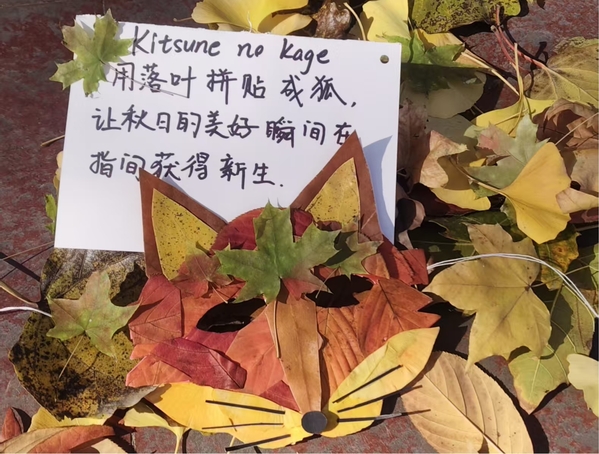 Kitsune no Kage
用落叶拼贴成狐,
让秋日的美好瞬间在
指间获得新生.